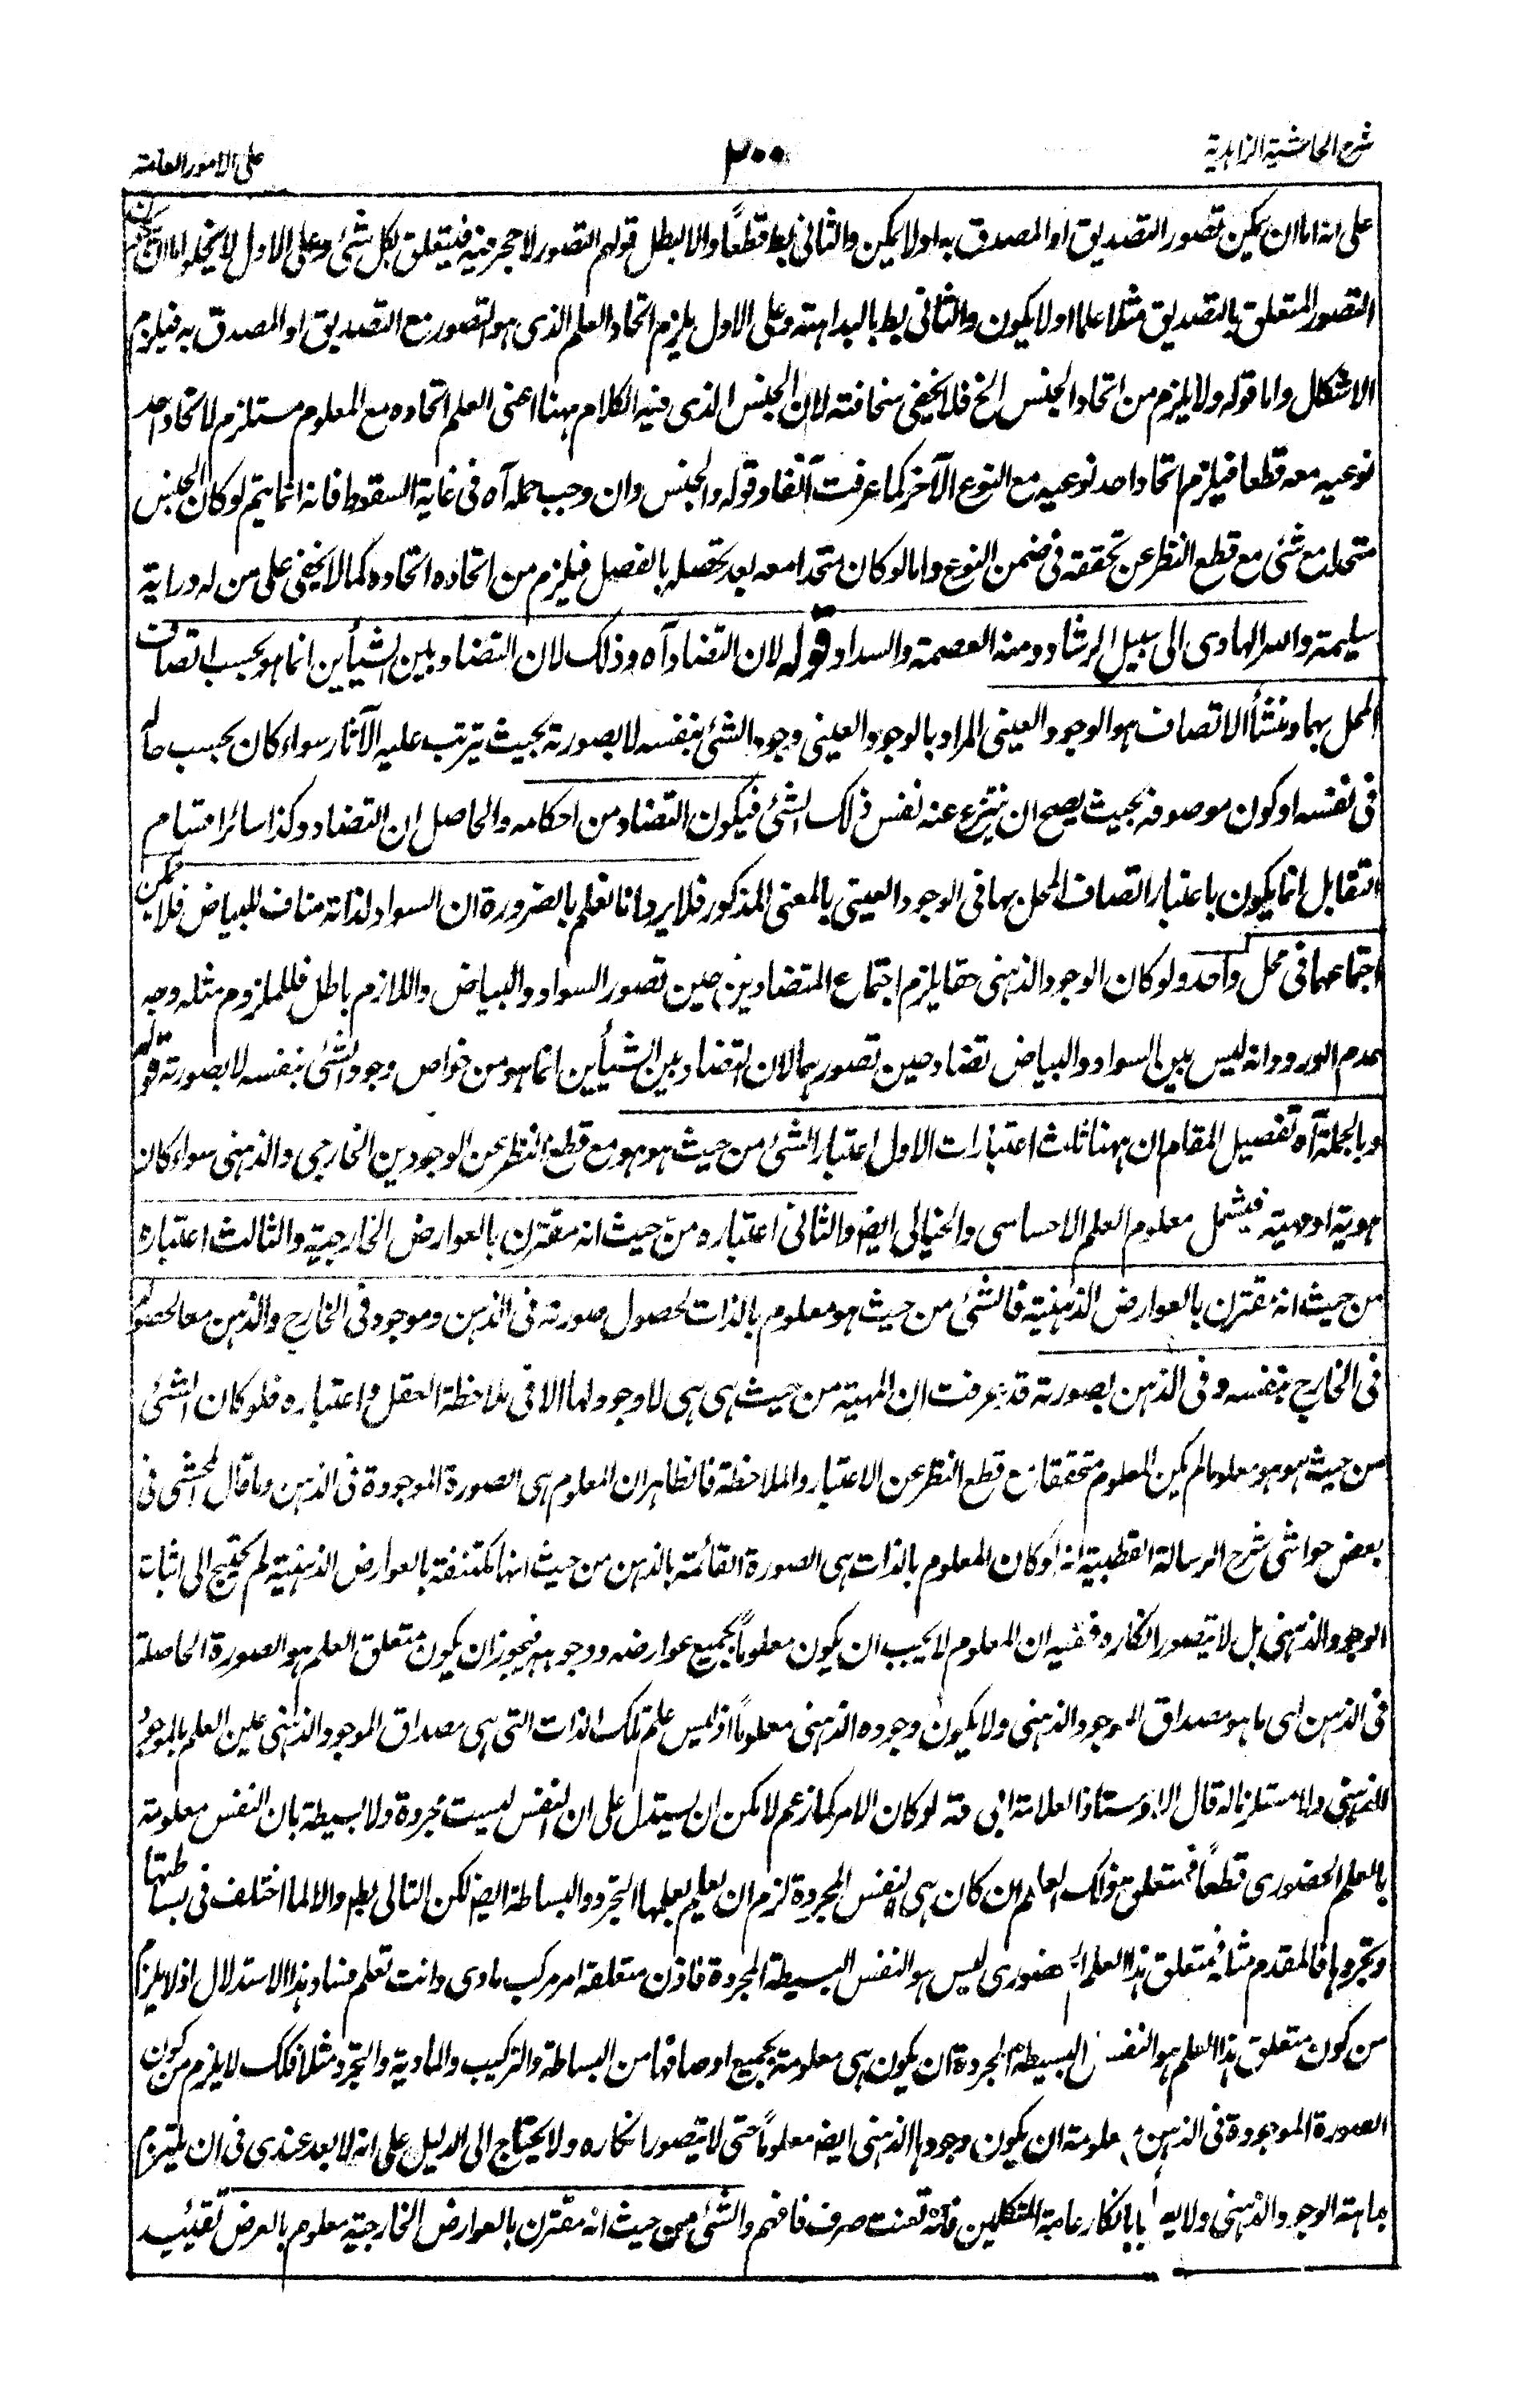 شرح الحاشية الزاهدية
٢٠٠
على الامور العامة
على انه اما ان يمكن تصور التصديق او المصدق به او لا يمكن والثانى بط قطعًا والا لبطل قولهم التصور لا حجر فيه فيتعلق بكل شئ وعلى الاول لا يخلوا اما ان يكون
التصور المتعلق بالتصديق مثلا علما او لا يكون والثانى بط بالبداهة وعلى الاول يلزم اتحاد العلم الذى هو التصور مع التصديق او المصدق به فيلزم
الاشكال واما قوله ولا يلزم من اتحاد الجنس الخ فلا يخفى سخافته لان الجنس الذى فيه الكلام ههنا اعنى العلم اتحاده مع المعلوم مستلزم لاتحاد احد
نوعيه معه قطعا فيلزم اتحاد احد نوعيه مع النوع الآخر كما عرفت آنفا وقوله والجنس وان وجب حمله آه فى غاية السقوط فانه انما يتم لو كان الجنس
متحدا مع شئ مع قطع النظر عن تحققه فى ضمن النوع واما لو كان متحدا معه بعد تحصله بالفصل فيلزم من اتحاده اتحاده كما لا يخفى على من له دراية
سليمة والله الهادى الى سبيل الرشاد ومنه العصمة والسداد قوله لان التضاد آه وذلك لان التضاد بين الشيأين انما هو بحسب اتصاف
المحل بهما ومنشأ الاتصاف هو الوجود العينى المراد بالوجود العينى وجود الشئ بنفسه لا بصورته بحيث يترتب عليه الآثار سواء كان بحسب حاله
فى نفسه او كون موصوفه بحيث يصح ان ينتزع عنه نفس ذلك الشئ فيكون التضاد من احكامه والحاصل ان التضاد وكذا سائر اقسام
التقابل انما يكون باعتبار اتصاف المحل بها فى الوجود العينى بالمعنى المذكور فلا يرد انا نعلم بالضرورة ان السواد لذاته مناف للبياض فلا يمكن
اجتماعهما فى محل واحد ولو كان الوجود الذهنى حقا يلزم اجتماع المتضادين حين تصور السواد والبياض واللازم باطل فالملزوم مثله وجه
عدم الورود انه ليس بين السواد والبياض تضاد حين تصورهما لان التضاد بين الشيأين انما هو من خواص وجود الشئ بنفسه لا بصورته قوله
وبالجملة آه تفصيل المقام ان ههنا ثلث اعتبارات الاول اعتبار الشئ من حيث هو هو مع قطع النظر عن الوجودين الخارجى والذهنى سواء كان
هوية او مهية فيشمل معلوم العلم الاحساسى والخيالى ايض والثانى اعتباره من حيث انه مقترن بالعوارض الخارجية والثالث اعتباره
من حيث انه مقترن بالعوارض الذهنية فالشئ من حيث هو معلوم بالذات لحصول صورته فى الذهن وموجود فى الخارج والذهن معا لحصوله
فى الخارج بنفسه وفى الذهن بصورته قد عرفت ان المهية من حيث هى هى لا وجود لها الا فى ملاحظة العقل واعتباره فلو كان الشئ
من حيث هو هو معلوما لم يكن المعلوم متحققا مع قطع النظر عن الاعتبار والملاحظة فالظاهر ان المعلوم هى الصورة الموجودة فى الذهن وما قال المحشى فى
بعض حواشى شرح الرسالة القطبية انه لو كان المعلوم بالذات هى الصورة القائمة بالذهن من حيث انها مكتنفة بالعوارض الذهنية لم يحتج الى اثبات
الوجود الذهنى بل لا يتصور انكاره ففيه ان المعلوم لا يجب ان يكون معلومًا بجميع عوارضه ووجوهه فيجوز ان يكون متعلق العلم هو الصورة الحاصلة
فى الذهن اى ما هو مصداق الموجود الذهنى ولا يكون وجوده الذهنى معلومًا اذ ليس علم تلك الذات التى هى مصداق الموجود الذهنى عين العلم بالموجود
الذهنى ولا مستلزما له قال الاوستاذ العلامة ابى قده لو كان الامر كما زعم لامكن ان يستدل على ان النفس ليست مجردة ولا بسيطة بان النفس معلومة
بالعلم الحضورى قطعًا فمتعلق ذلك العلم ان كان هى النفس المجردة لزم ان يعلم بعلمها التجرد والبساطة ايض لكن التالى بط والا لما اختلف فى بساطتها
وتجردها فالمقدم مثله فمتعلق هذا العلم الحضورى ليس هو النفس البسيطة المجردة فاذن متعلقه امر مركب مادى وانت تعلم فساد هذا الاستدلال اذ لا يلزم
من كون متعلق هذا العلم هو النفس البسيطة المجردة ان يكون هى معلومة بجميع اوصافها من البساطة والتركيب والمادية والتجرد مثلا فكك لا يلزم من كون
الصورة الموجودة فى الذهن معلومة ان يكون وجودها الذهنى ايض معلومًا حتى لا يتصور انكاره ولا يحتاج الى الدليل على انه لا بعد عندى فى ان يلتزم
بداهة الوجود الذهنى ولا يعبأ بانكار عامة المتكلمين فانه تعنت صرف فافهم والشئ من حيث انه مقترن بالعوارض الخارجية معلوم بالعرض تقييد